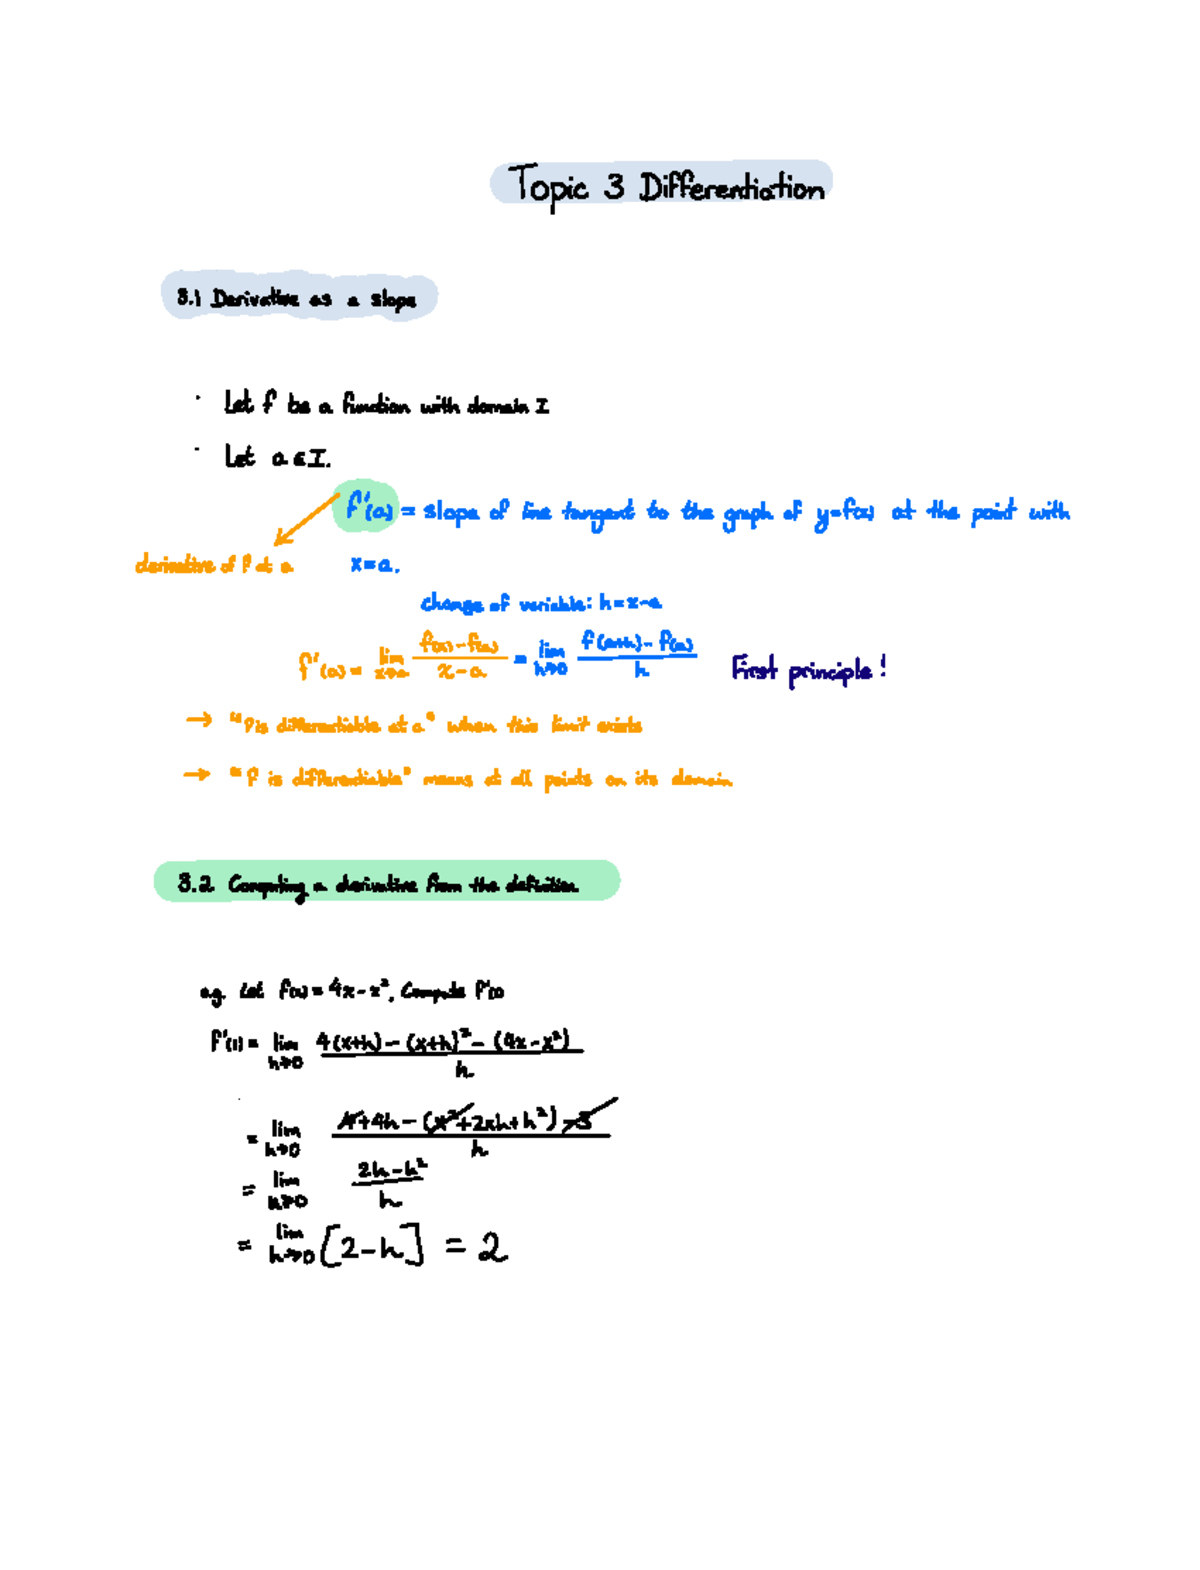 Topic 3 Differentiation
3.1 Derivative as a slope
· Let f be a function with domain I
· Let a ∈ I.
f'(a) = slope of line tangent to the graph of y=f(x) at the point with
derivative of f at a x=a.
change of variable: h=x-a
f'(a) = lim x→a (f(x)-f(a))/(x-a) = lim h→0 (f(a+h)-f(a))/h First principle!
→ "f is differentiable at a" when this limit exists
→ "f is differentiable" means at all points on its domain
3.2 Computing a derivative from the definition
e.g. Let f(x) = 4x-x², Compute f'(1)
f'(1) = lim h→0 (4(x+h)-(x+h)²-(4x-x²))/h
= lim h→0 (4+4h-(x²+2xh+h²)-3)/h
= lim h→0 (2h-h²)/h
= lim h→0 [2-h] = 2